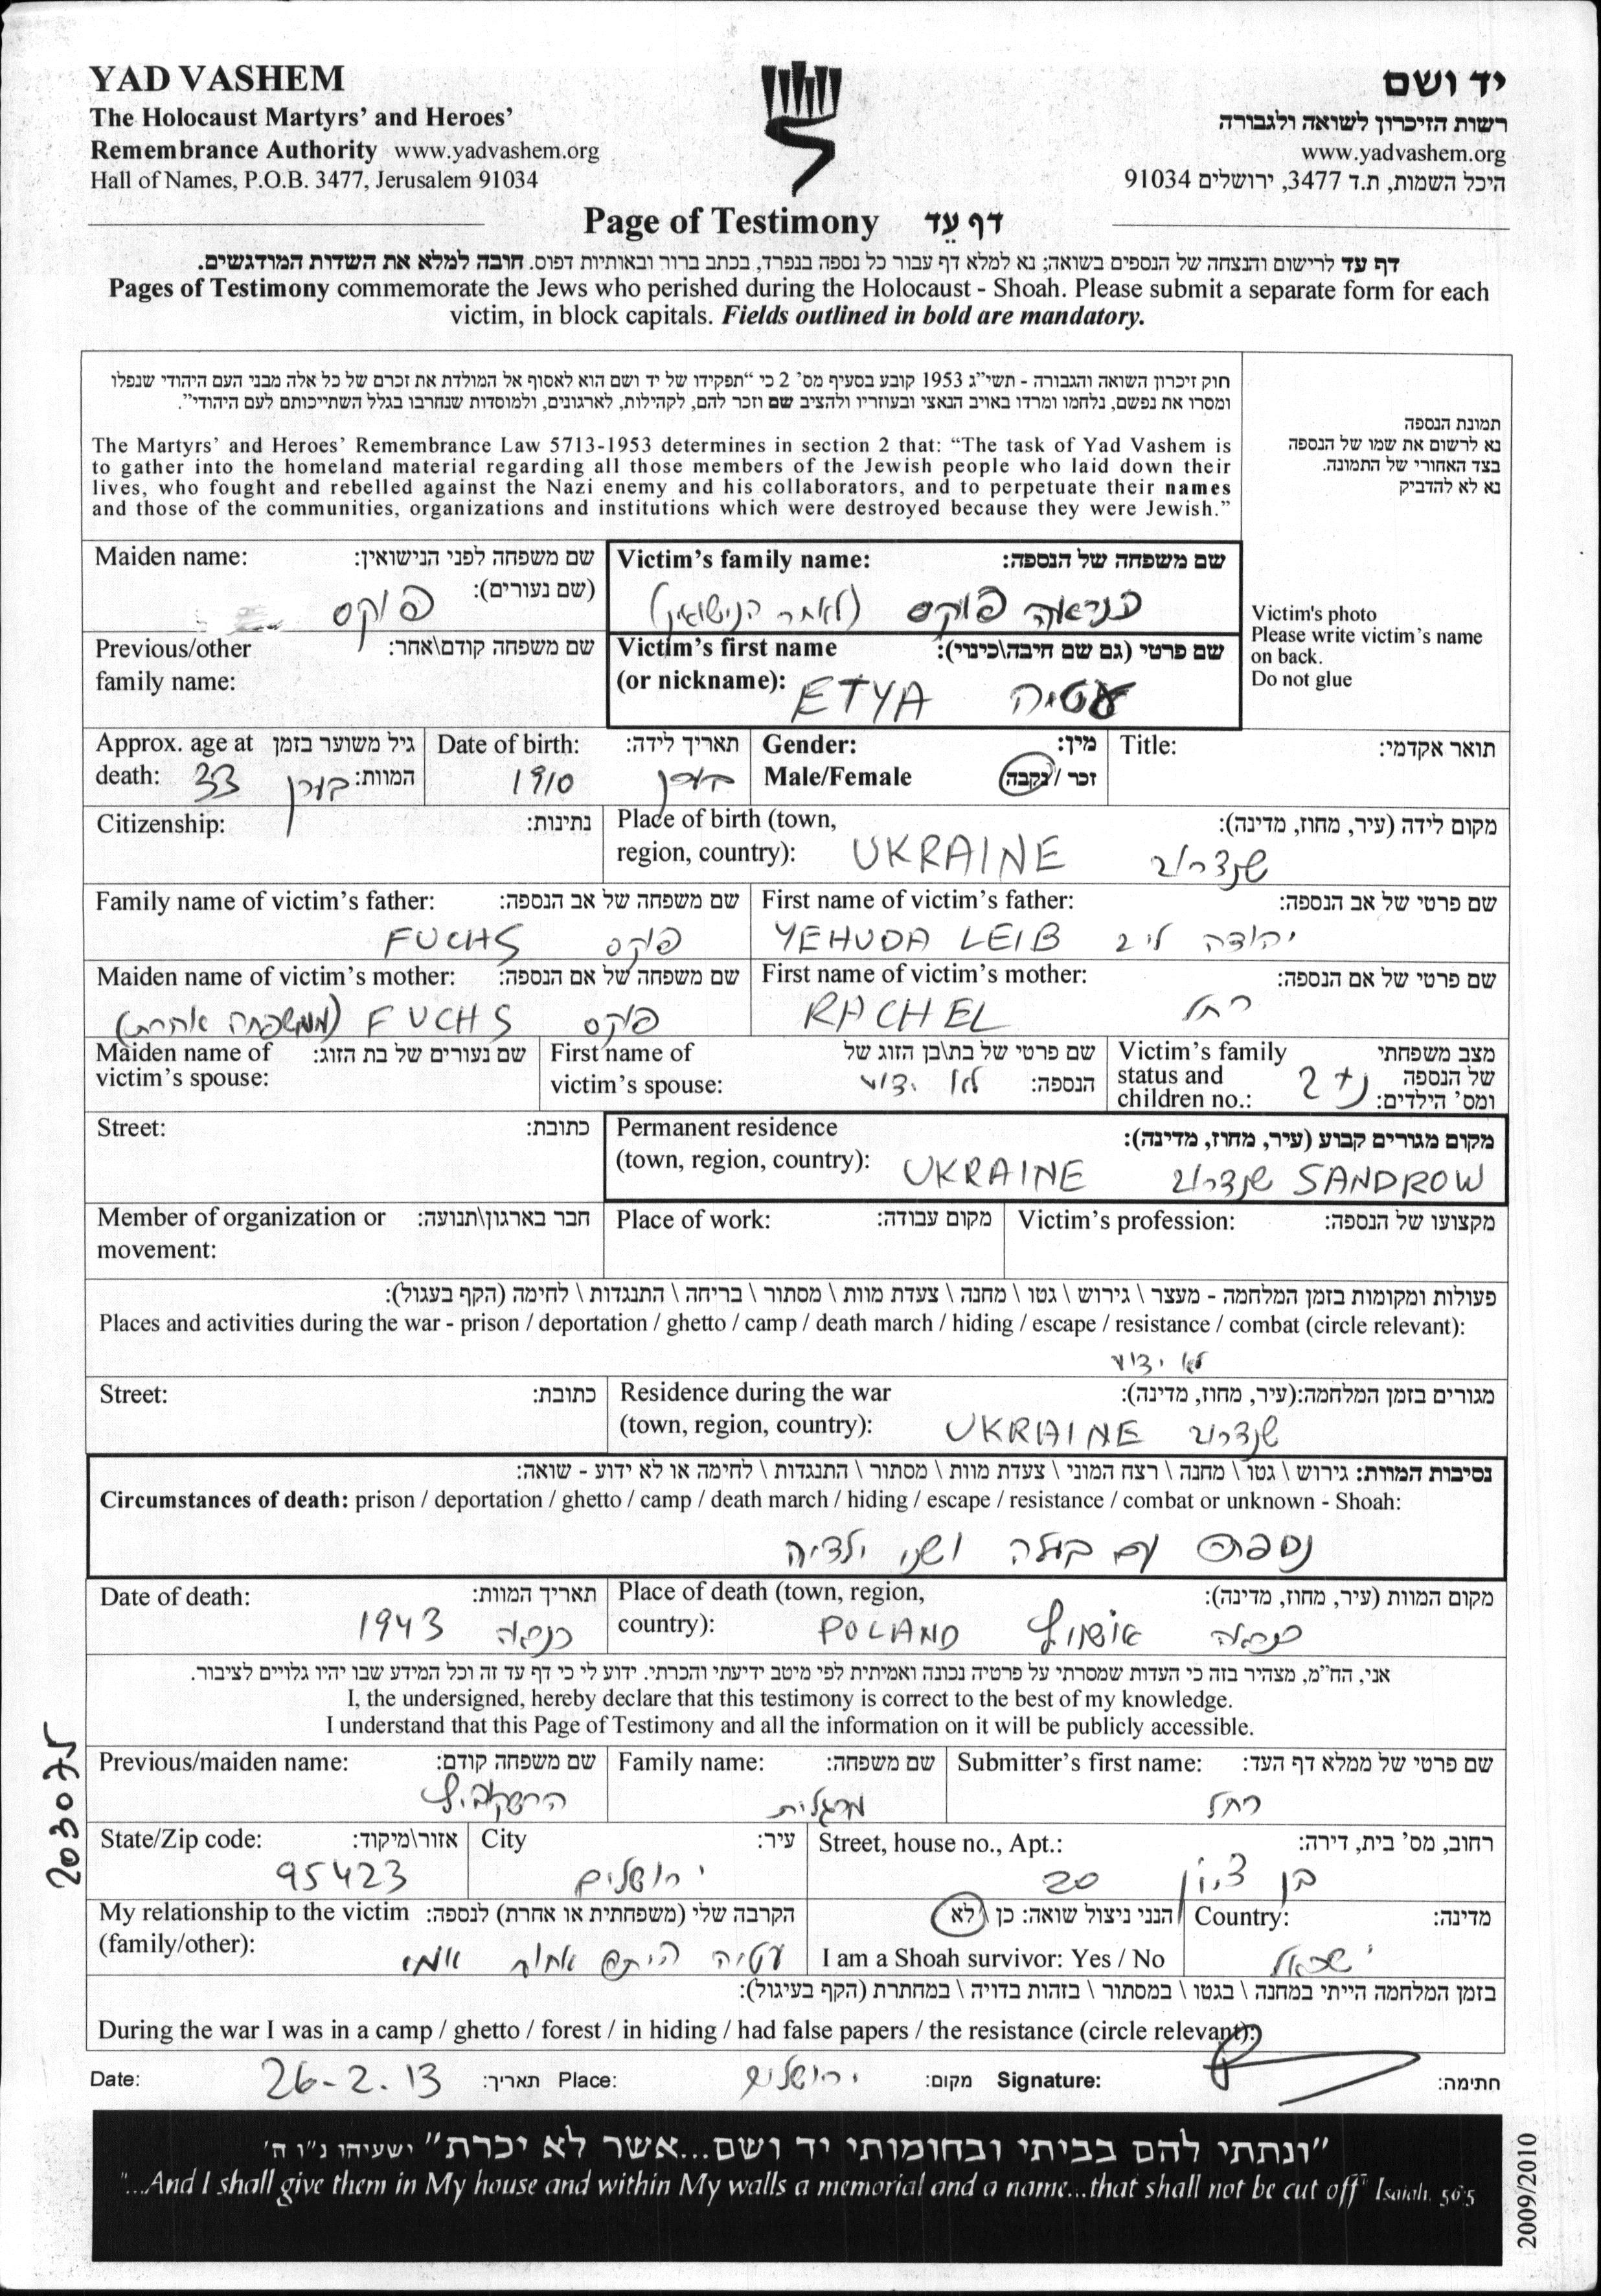 YAD VASHEM
The Holocaust Martyrs’ and Heroes’
Remembrance Authority www.yadvashem.org
Hall of Names, P.O.B. 3477, Jerusalem 91034
יד ושם
רשות הזיכרון לשואה ולגבורה
www.yadvashem.org
היכל השמות, ת.ד 3477, ירושלים 91034
Page of Testimony דף עֵד
דף עד לרישום והנצחה של הנספים בשואה; נא למלא דף עבור כל נספה בנפרד, בכתב ברור ובאותיות דפוס. חובה למלא את השדות המודגשים.
Pages of Testimony commemorate the Jews who perished during the Holocaust - Shoah. Please submit a separate form for each
victim, in block capitals. Fields outlined in bold are mandatory.
חוק זיכרון השואה והגבורה - תשי״ג 1953 קובע בסעיף מס׳ 2 כי “תפקידו של יד ושם הוא לאסוף אל המולדת את זכרם של כל אלה מבני העם היהודי שנפלו
ומסרו את נפשם, נלחמו ומרדו באויב הנאצי ובעוזריו ולהציב שם וזכר להם, לקהילות, לארגונים, ולמוסדות שנחרבו בגלל השתייכותם לעם היהודי”.
The Martyrs’ and Heroes’ Remembrance Law 5713-1953 determines in section 2 that: “The task of Yad Vashem is
to gather into the homeland material regarding all those members of the Jewish people who laid down their
lives, who fought and rebelled against the Nazi enemy and his collaborators, and to perpetuate their names
and those of the communities, organizations and institutions which were destroyed because they were Jewish.”
תמונת הנספה
נא לרשום את שמו של הנספה
בצד האחורי של התמונה.
נא לא להדביק
Victim's photo
Please write victim’s name
on back.
Do not glue
Maiden name: שם משפחה לפני הנישואין:
(שם נעורים):
פוקס
Victim’s family name: שם משפחה של הנספה:
כנראה פוקס (לאחר הנישואין)
Previous/other שם משפחה קודם\אחר:
family name:
Victim’s first name שם פרטי (גם שם חיבה\כינוי):
(or nickname): ETYA עטיה
Approx. age at גיל משוער בזמן
death: 33 המוות: בערך
Date of birth: תאריך לידה:
1910 בערך
Gender: מין:
Male/Female זכר / נקבה
Title: תואר אקדמי:
Citizenship: נתינות:
Place of birth (town, מקום לידה (עיר, מחוז, מדינה):
region, country): UKRAINE שנדרוב
Family name of victim’s father: שם משפחה של אב הנספה:
FUCHS פוקס
First name of victim’s father: שם פרטי של אב הנספה:
YEHUDA LEIB יהודה ליב
Maiden name of victim’s mother: שם משפחה של אם הנספה:
FUCHS פוקס (ממשפחה אחרת)
First name of victim’s mother: שם פרטי של אם הנספה:
RACHEL רחל
Maiden name of שם נעורים של בת הזוג:
victim’s spouse:
First name of שם פרטי של בת\בן הזוג של
victim’s spouse: הנספה: לא ידוע
Victim’s family מצב משפחתי
status and של הנספה
children no.: ומס׳ הילדים: נ+2
Street: כתובת:
Permanent residence מקום מגורים קבוע (עיר, מחוז, מדינה):
(town, region, country): UKRAINE שנדרוב SANDROW
Member of organization or חבר בארגון\תנועה:
movement:
Place of work: מקום עבודה:
Victim’s profession: מקצועו של הנספה:
פעולות ומקומות בזמן המלחמה - מעצר \ גירוש \ גטו \ מחנה \ צעדת מוות \ מסתור \ בריחה \ התנגדות \ לחימה (הקף בעגול):
Places and activities during the war - prison / deportation / ghetto / camp / death march / hiding / escape / resistance / combat (circle relevant):
לא ידוע
Street: כתובת:
Residence during the war מגורים בזמן המלחמה:(עיר, מחוז, מדינה):
(town, region, country): UKRAINE שנדרוב
נסיבות המוות: גירוש \ גטו \ מחנה \ רצח המוני \ צעדת מוות \ מסתור \ התנגדות \ לחימה או לא ידוע - שואה:
Circumstances of death: prison / deportation / ghetto / camp / death march / hiding / escape / resistance / combat or unknown - Shoah:
נספתה עם בעלה ושני ילדיה
Date of death: תאריך המוות:
1943 כנראה
Place of death (town, region, מקום המוות (עיר, מחוז, מדינה):
country): POLAND אושוויץ כנראה
אני, הח״מ, מצהיר בזה כי העדות שמסרתי על פרטיה נכונה ואמיתית לפי מיטב ידיעתי והכרתי. ידוע לי כי דף עד זה וכל המידע שבו יהיו גלויים לציבור.
I, the undersigned, hereby declare that this testimony is correct to the best of my knowledge.
I understand that this Page of Testimony and all the information on it will be publicly accessible.
Previous/maiden name: שם משפחה קודם:
הרשקוביץ
Family name: שם משפחה:
מרגלית
Submitter’s first name: שם פרטי של ממלא דף העד:
רחל
State/Zip code: אזור\מיקוד:
95423
City עיר:
ירושלים
Street, house no., Apt.: רחוב, מס׳ בית, דירה:
בן ציון 20
My relationship to the victim הקרבה שלי (משפחתית או אחרת) לנספה:
(family/other): עטיה היתה אחות אימי
הנני ניצול שואה: כן \ לא
I am a Shoah survivor: Yes / No
Country: מדינה:
ישראל
בזמן המלחמה הייתי במחנה \ בגטו \ במסתור \ בזהות בדויה \ במחתרת (הקף בעיגול):
During the war I was in a camp / ghetto / forest / in hiding / had false papers / the resistance (circle relevant):
Date: 26-2.13 תאריך: Place: ירושלים מקום: Signature: חתימה:
״ונתתי להם בביתי ובחומותי יד ושם...אשר לא יכרת״ ישעיהו נ״ו ה׳
"...And I shall give them in My house and within My walls a memorial and a name...that shall not be cut off" Isaiah, 56:5
203075
2009/2010